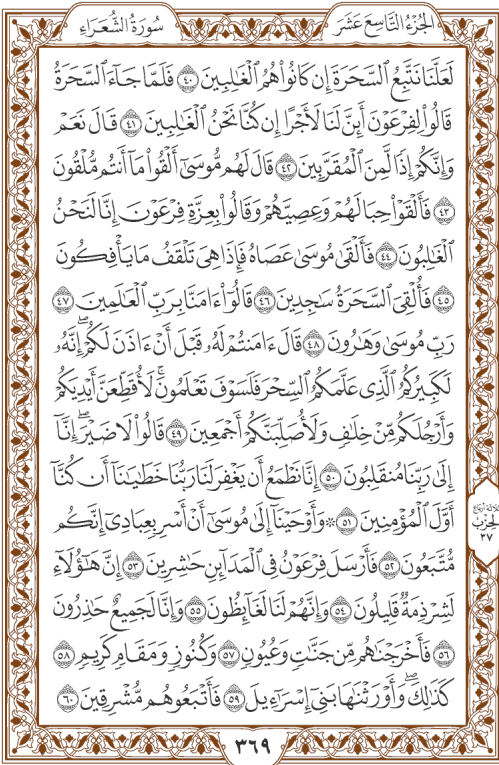 الجُزْءُ التَّاسِعَ عَشَرَ
سُورَةُ الشُّعَرَاءِ
لَعَلَّنَا نَتَّبِعُ ٱلسَّحَرَةَ إِن كَانُوا۟ هُمُ ٱلْغَـٰلِبِينَ ٤٠ فَلَمَّا جَآءَ ٱلسَّحَرَةُ
قَالُوا۟ لِفِرْعَوْنَ أَئِنَّ لَنَا لَأَجْرًا إِن كُنَّا نَحْنُ ٱلْغَـٰلِبِينَ ٤١ قَالَ نَعَمْ
وَإِنَّكُمْ إِذًا لَّمِنَ ٱلْمُقَرَّبِينَ ٤٢ قَالَ لَهُم مُّوسَىٰٓ أَلْقُوا۟ مَآ أَنتُم مُّلْقُونَ
٤٣ فَأَلْقَوْا۟ حِبَالَهُمْ وَعِصِيَّهُمْ وَقَالُوا۟ بِعِزَّةِ فِرْعَوْنَ إِنَّا لَنَحْنُ
ٱلْغَـٰلِبُونَ ٤٤ فَأَلْقَىٰ مُوسَىٰ عَصَاهُ فَإِذَا هِىَ تَلْقَفُ مَا يَأْفِكُونَ
٤٥ فَأُلْقِىَ ٱلسَّحَرَةُ سَـٰجِدِينَ ٤٦ قَالُوٓا۟ ءَامَنَّا بِرَبِّ ٱلْعَـٰلَمِينَ ٤٧
رَبِّ مُوسَىٰ وَهَـٰرُونَ ٤٨ قَالَ ءَامَنتُمْ لَهُۥ قَبْلَ أَنْ ءَاذَنَ لَكُمْ ۖ إِنَّهُۥ
لَكَبِيرُكُمُ ٱلَّذِى عَلَّمَكُمُ ٱلسِّحْرَ فَلَسَوْفَ تَعْلَمُونَ ۚ لَأُقَطِّعَنَّ أَيْدِيَكُمْ
وَأَرْجُلَكُم مِّنْ خِلَـٰفٍ وَلَأُصَلِّبَنَّكُمْ أَجْمَعِينَ ٤٩ قَالُوا۟ لَا ضَيْرَ ۖ إِنَّآ
إِلَىٰ رَبِّنَا مُنقَلِبُونَ ٥٠ إِنَّا نَطْمَعُ أَن يَغْفِرَ لَنَا رَبُّنَا خَطَـٰيَـٰنَآ أَن كُنَّآ
أَوَّلَ ٱلْمُؤْمِنِينَ ٥١ ۞ وَأَوْحَيْنَآ إِلَىٰ مُوسَىٰٓ أَنْ أَسْرِ بِعِبَادِىٓ إِنَّكُم
مُّتَّبَعُونَ ٥٢ فَأَرْسَلَ فِرْعَوْنُ فِى ٱلْمَدَآئِنِ حَـٰشِرِينَ ٥٣ إِنَّ هَـٰٓؤُلَآءِ
لَشِرْذِمَةٌ قَلِيلُونَ ٥٤ وَإِنَّهُمْ لَنَا لَغَآئِظُونَ ٥٥ وَإِنَّا لَجَمِيعٌ حَـٰذِرُونَ
٥٦ فَأَخْرَجْنَـٰهُم مِّن جَنَّـٰتٍ وَعُيُونٍ ٥٧ وَكُنُوزٍ وَمَقَامٍ كَرِيمٍ ٥٨
كَذَٰلِكَ ۖ وَأَوْرَثْنَـٰهَا بَنِىٓ إِسْرَٰٓءِيلَ ٥٩ فَأَتْبَعُوهُم مُّشْرِقِينَ ٦٠
الحِزْبِ
٣٧
٣٦٩